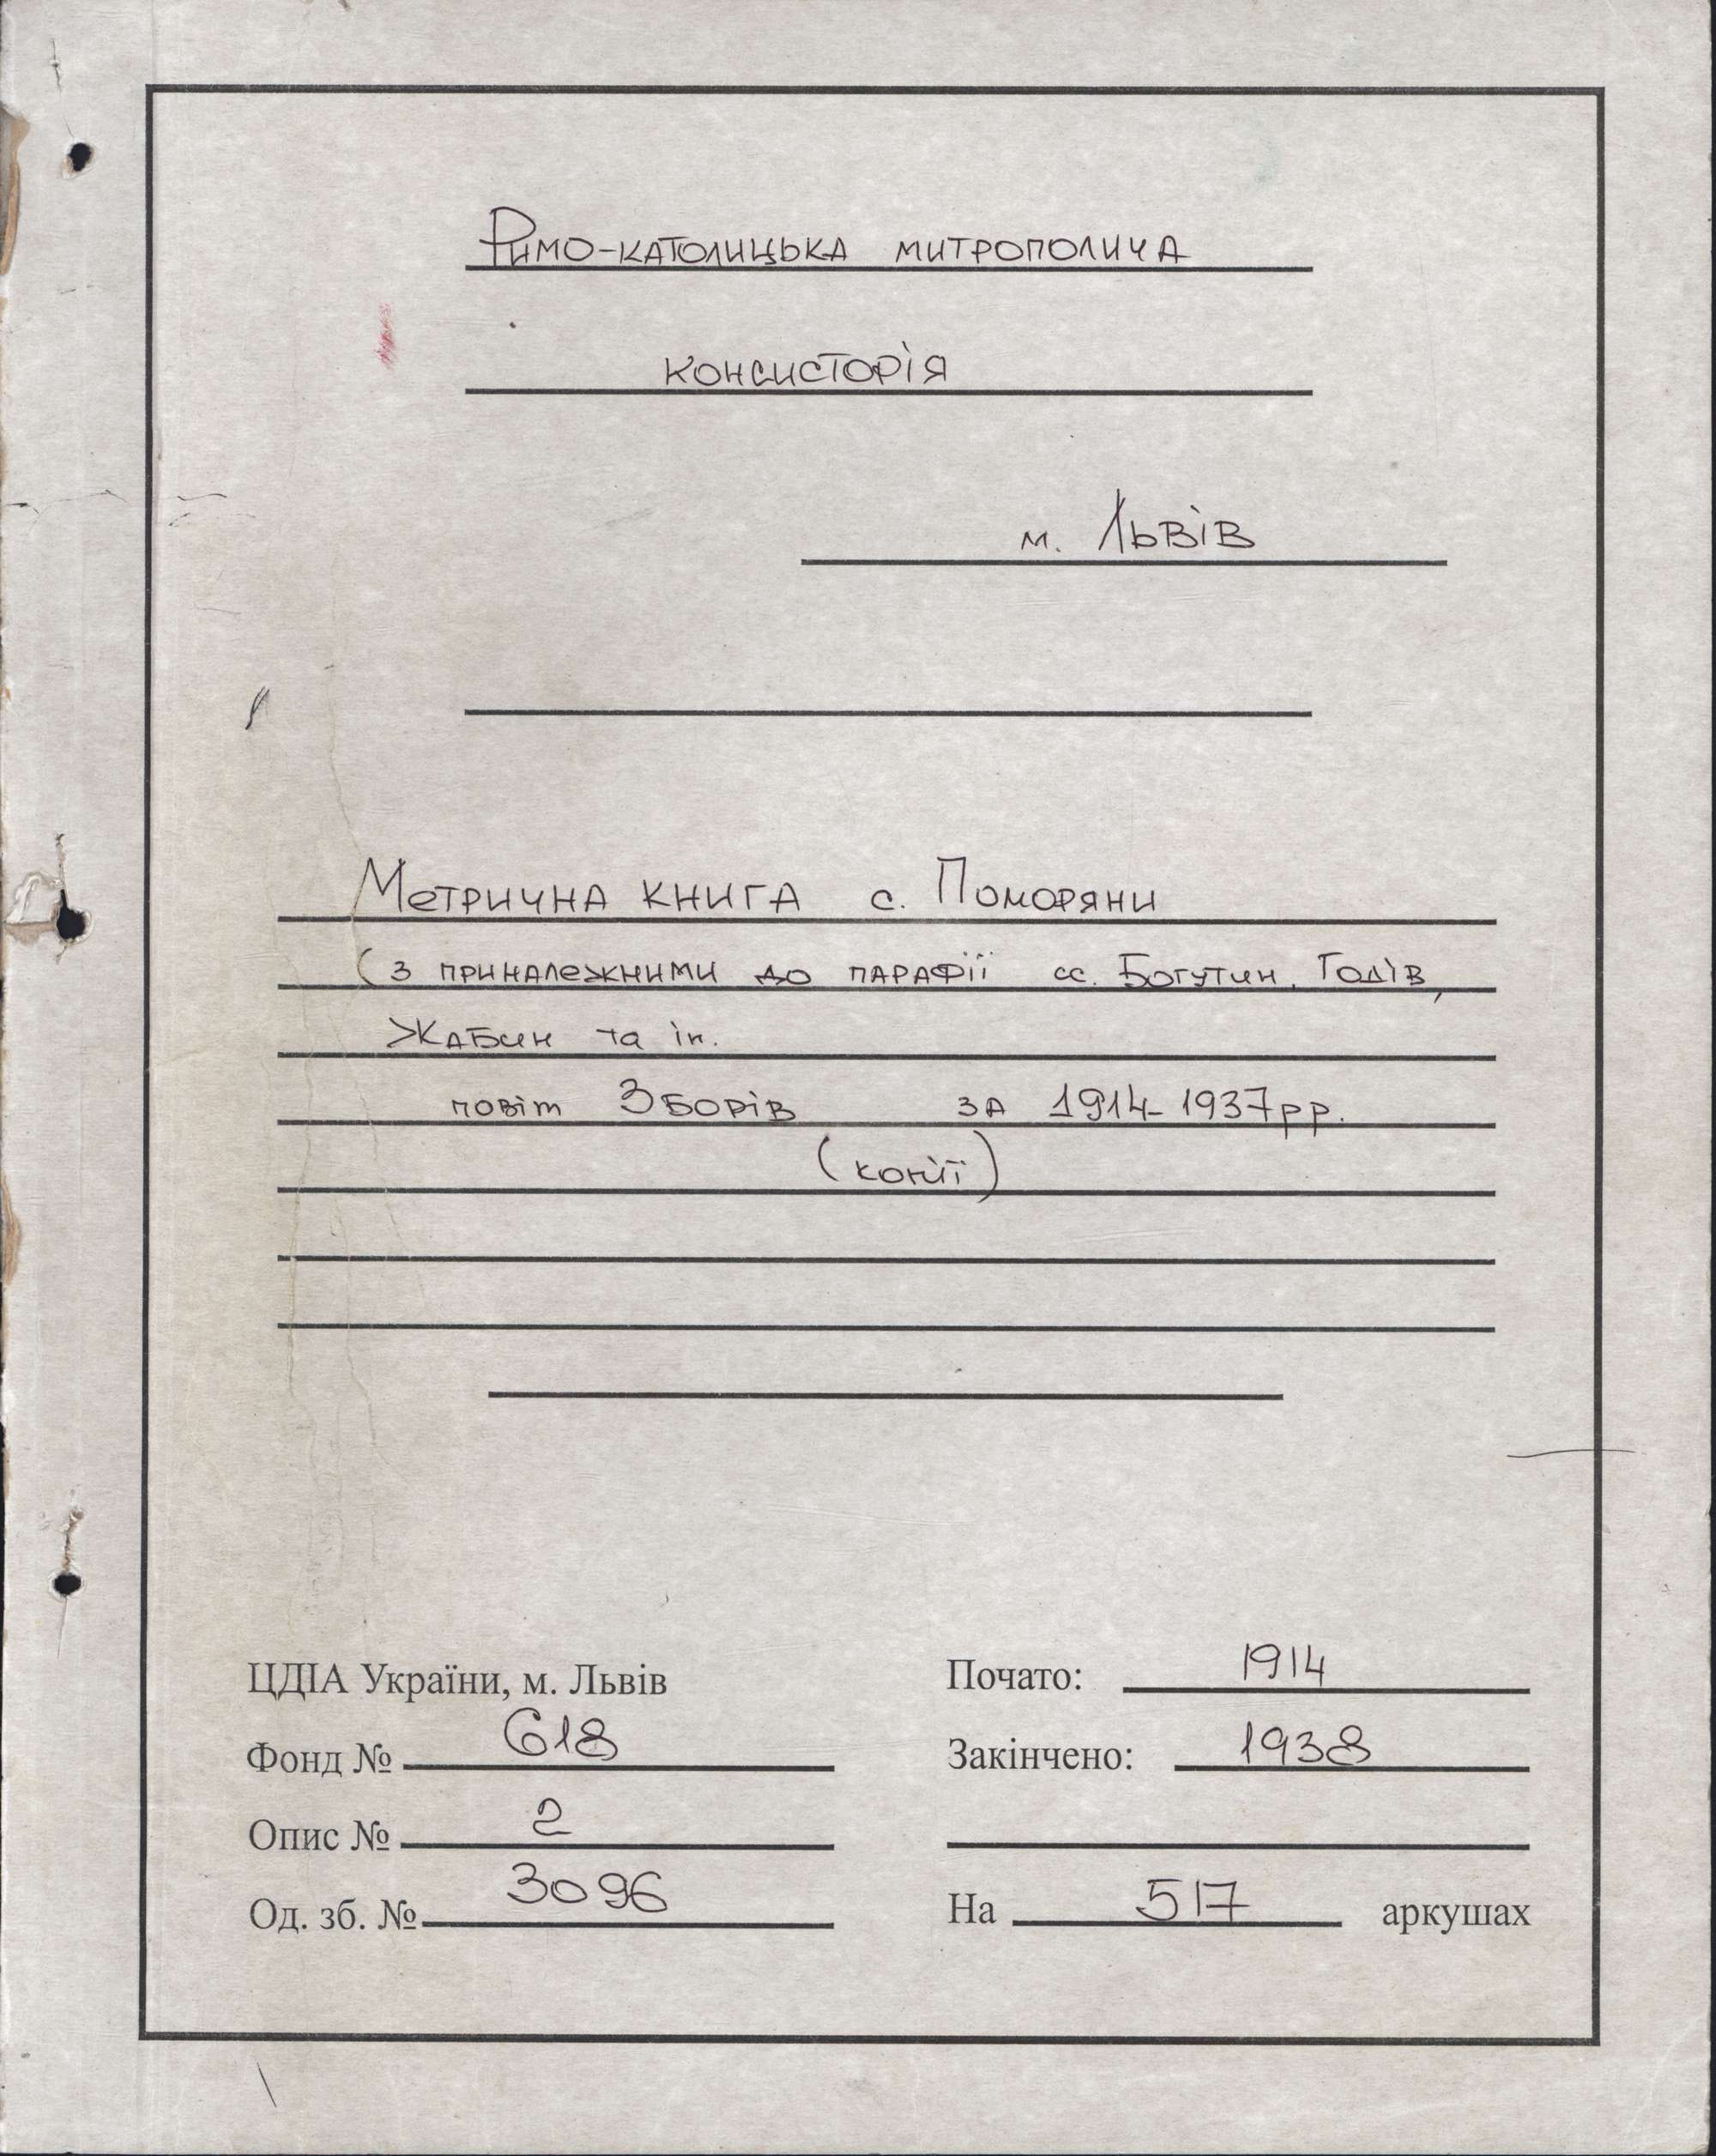 Римо-католицька митрополича
консисторія
м. Львів
Метрична книга с. Поморяни
(з приналежними до парафії сс. Богутин, Годів,
Жабин та ін.
повіт Зборів за 1914-1937рр.
(копії)
ЦДІА України, м. Львів
Фонд № 618
Опис № 2
Од. зб. № 3096
Почато: 1914
Закінчено: 1938
На 517 аркушах